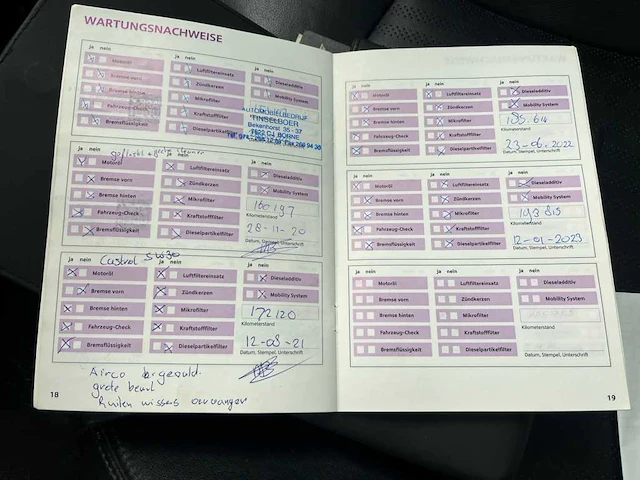 WARTUNGSNACHWEISE
ja nein ja nein ja nein
Motoröl Luftfiltereinsatz Dieseladditiv
Bremse vorn Zündkerzen Mobility System
Bremse hinten Mikrofilter
Fahrzeug-Check Kraftstofffilter
Bremsflüssigkeit Dieselpartikelfilter
AUTOMOBIELBEDRIJF
TINSELBOER
Bekenhorst 35 - 37
ja nein ja nein ja nein
Motoröl Luftfiltereinsatz Dieseladditiv
Bremse vorn Zündkerzen Mobility System
Bremse hinten Mikrofilter 160197
Kilometerstand
Fahrzeug-Check Kraftstofffilter 28-11-20
Bremsflüssigkeit Dieselpartikelfilter Datum, Stempel, Unterschrift
Castrol 5W30
ja nein ja nein ja nein
Motoröl Luftfiltereinsatz Dieseladditiv
Bremse vorn Zündkerzen Mobility System
Bremse hinten Mikrofilter 172120
Kilometerstand
Fahrzeug-Check Kraftstofffilter 12-08-21
Bremsflüssigkeit Dieselpartikelfilter Datum, Stempel, Unterschrift
Airco
grote beurt
Ruiten wissers
18
ja nein ja nein ja nein
Motoröl Luftfiltereinsatz Dieseladditiv
Bremse vorn Zündkerzen Mobility System
Bremse hinten Mikrofilter
Kilometerstand
Fahrzeug-Check Kraftstofffilter 23-06-2022
Bremsflüssigkeit Dieselpartikelfilter Datum, Stempel, Unterschrift
ja nein ja nein ja nein
Motoröl Luftfiltereinsatz Dieseladditiv
Bremse vorn Zündkerzen Mobility System
Bremse hinten Mikrofilter
Kilometerstand
Fahrzeug-Check Kraftstofffilter 12-01-2023
Bremsflüssigkeit Dieselpartikelfilter Datum, Stempel, Unterschrift
ja nein ja nein ja nein
Motoröl Luftfiltereinsatz Dieseladditiv
Bremse vorn Zündkerzen Mobility System
Bremse hinten Mikrofilter
Kilometerstand
Fahrzeug-Check Kraftstofffilter
Bremsflüssigkeit Dieselpartikelfilter Datum, Stempel, Unterschrift
19